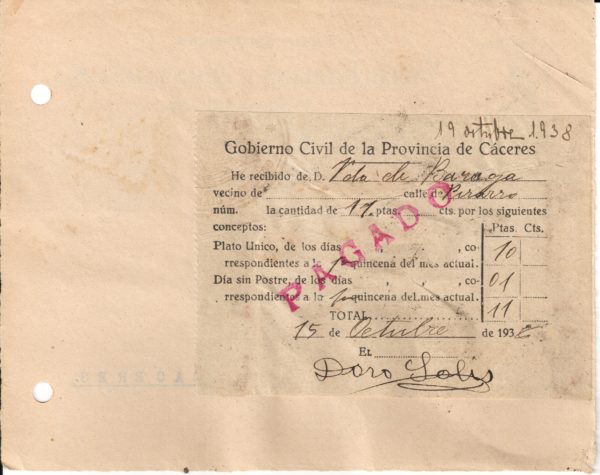 19 octubre 1938
Gobierno Civil de la Provincia de Cáceres
He recibido de D. Vda de
vecino de calle de Pizarro
núm. la cantidad de ptas. cts. por los siguientes
conceptos: Ptas. Cts.
Plato Unico, de los días , , , co- 10
rrespondientes a la quincena del mes actual.
Día sin Postre, de los días , , , co- 01
rrespondientes a la quincena del mes actual.
TOTAL 11
15 de Octubre de 193
EL
Doro Solis
PAGADO
CACERES